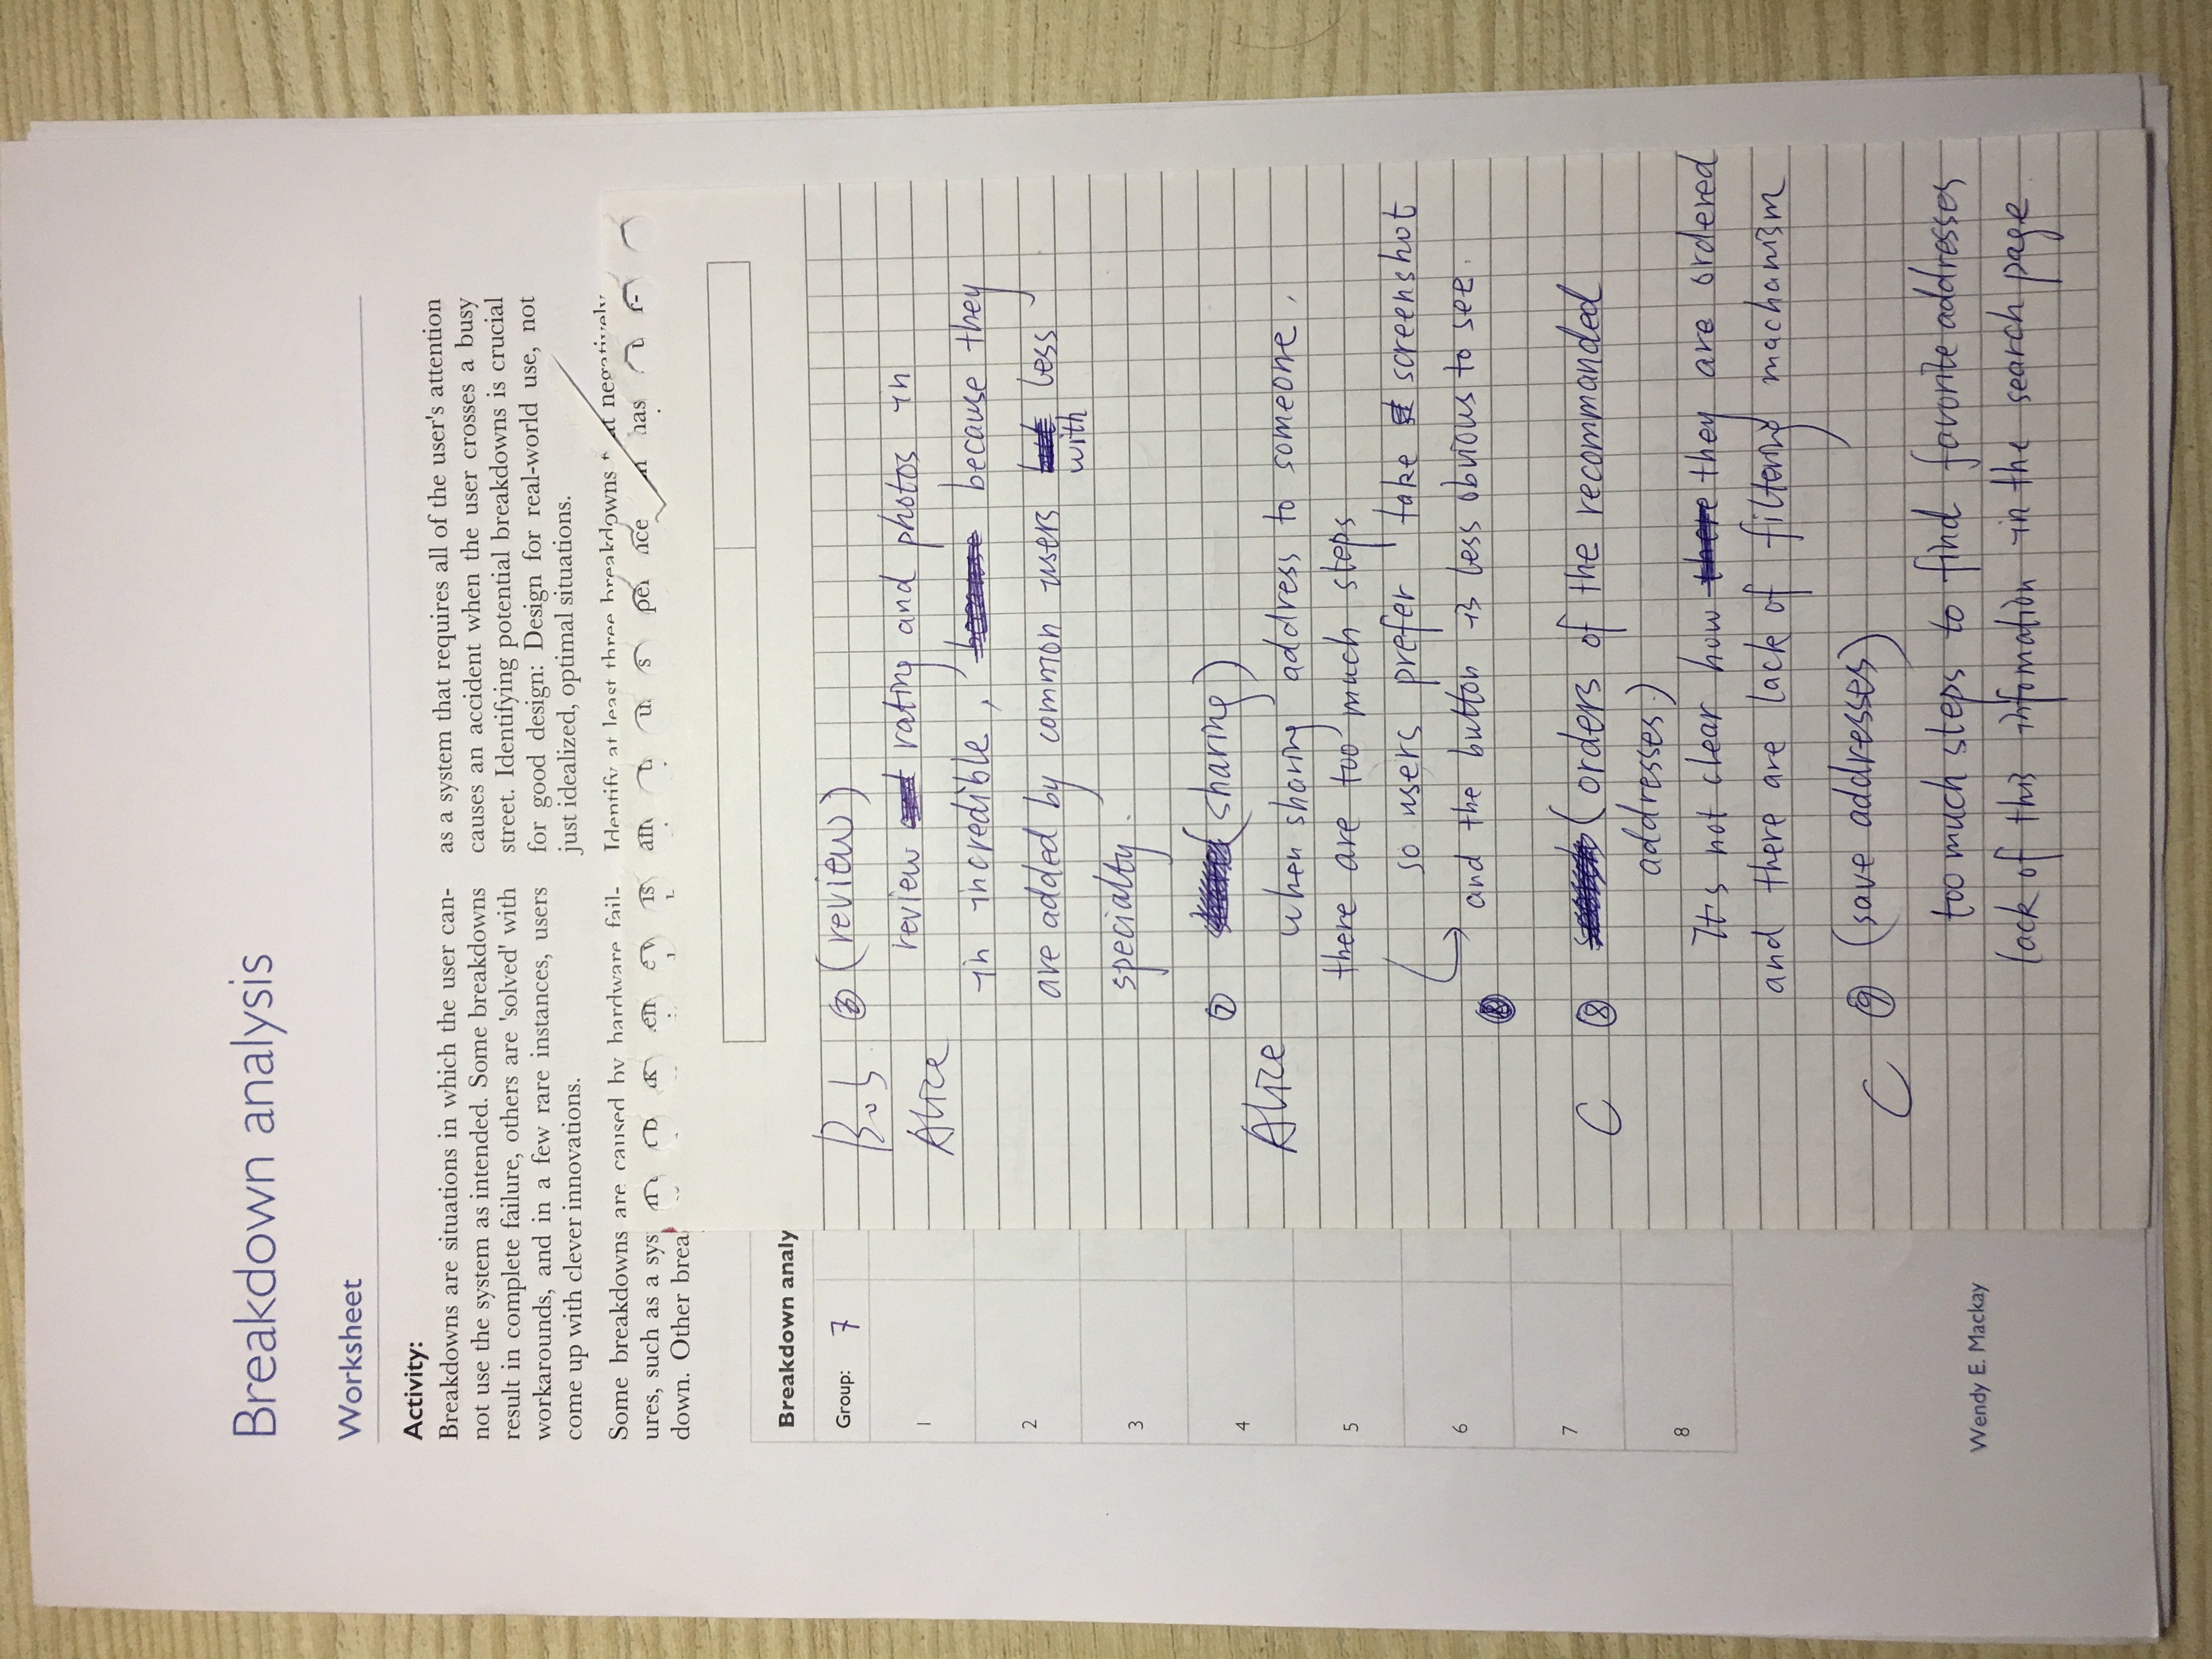 Breakdown analysis
Worksheet
Activity:
Breakdowns are situations in which the user can-
not use the system as intended. Some breakdowns
result in complete failure, others are 'solved' with
workarounds, and in a few rare instances, users
come up with clever innovations.
Some breakdowns are caused by hardware fail-
ures, such as a sys
down. Other brea
as a system that requires all of the user's attention
causes an accident when the user crosses a busy
street. Identifying potential breakdowns is crucial
for good design: Design for real-world use, not
just idealized, optimal situations.
Identify at least three breakdowns that negatively
has
Breakdown analy
Group: 7
1
2
3
4
5
6
7
8
Wendy E. Mackay
Bob (review)
Alice review rating and photos in
in incredible, because they
are added by common users with less
specialty.
⑦ (sharing)
Alice
when sharing address to someone,
there are too much steps
so users prefer take screenshot
and the button is less obvious to see.
C ⑧ (orders of the recommanded
addresses)
It's not clear how they are ordered
and there are lack of filtering machanism
C ⑨ (save addresses)
too much steps to find favorite addresses
lack of this infomation in the search page